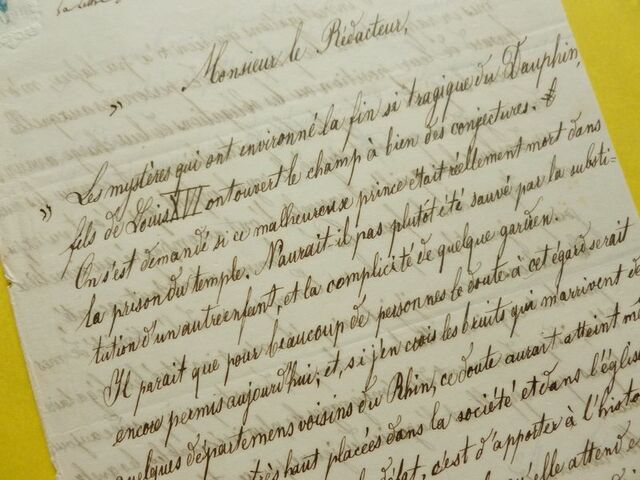 la lettre
Monsieur le Rédacteur,
"
Les mystères qui ont environné la fin si tragique du Dauphin,
" fils de Louis XVI ont ouvert le champ à bien des conjectures.
On s'est demandé si ce malheureux prince était réellement mort dans
la prison du temple. N'aurait-il pas plutôt été sauvé par la substi=
tution d'un autre enfant, et la complicité de quelque gardien.
Il parait que pour beaucoup de personnes le doute à cet égard serait
encore permis aujourd'hui; et si j'en crois les bruits qui m'arrivent d
quelques départemens voisins du Rhin, ce doute aurait atteint mê
très haut placées dans la société et dans l'églis
c'est d'apporter à l'histo
qu'elle attend e